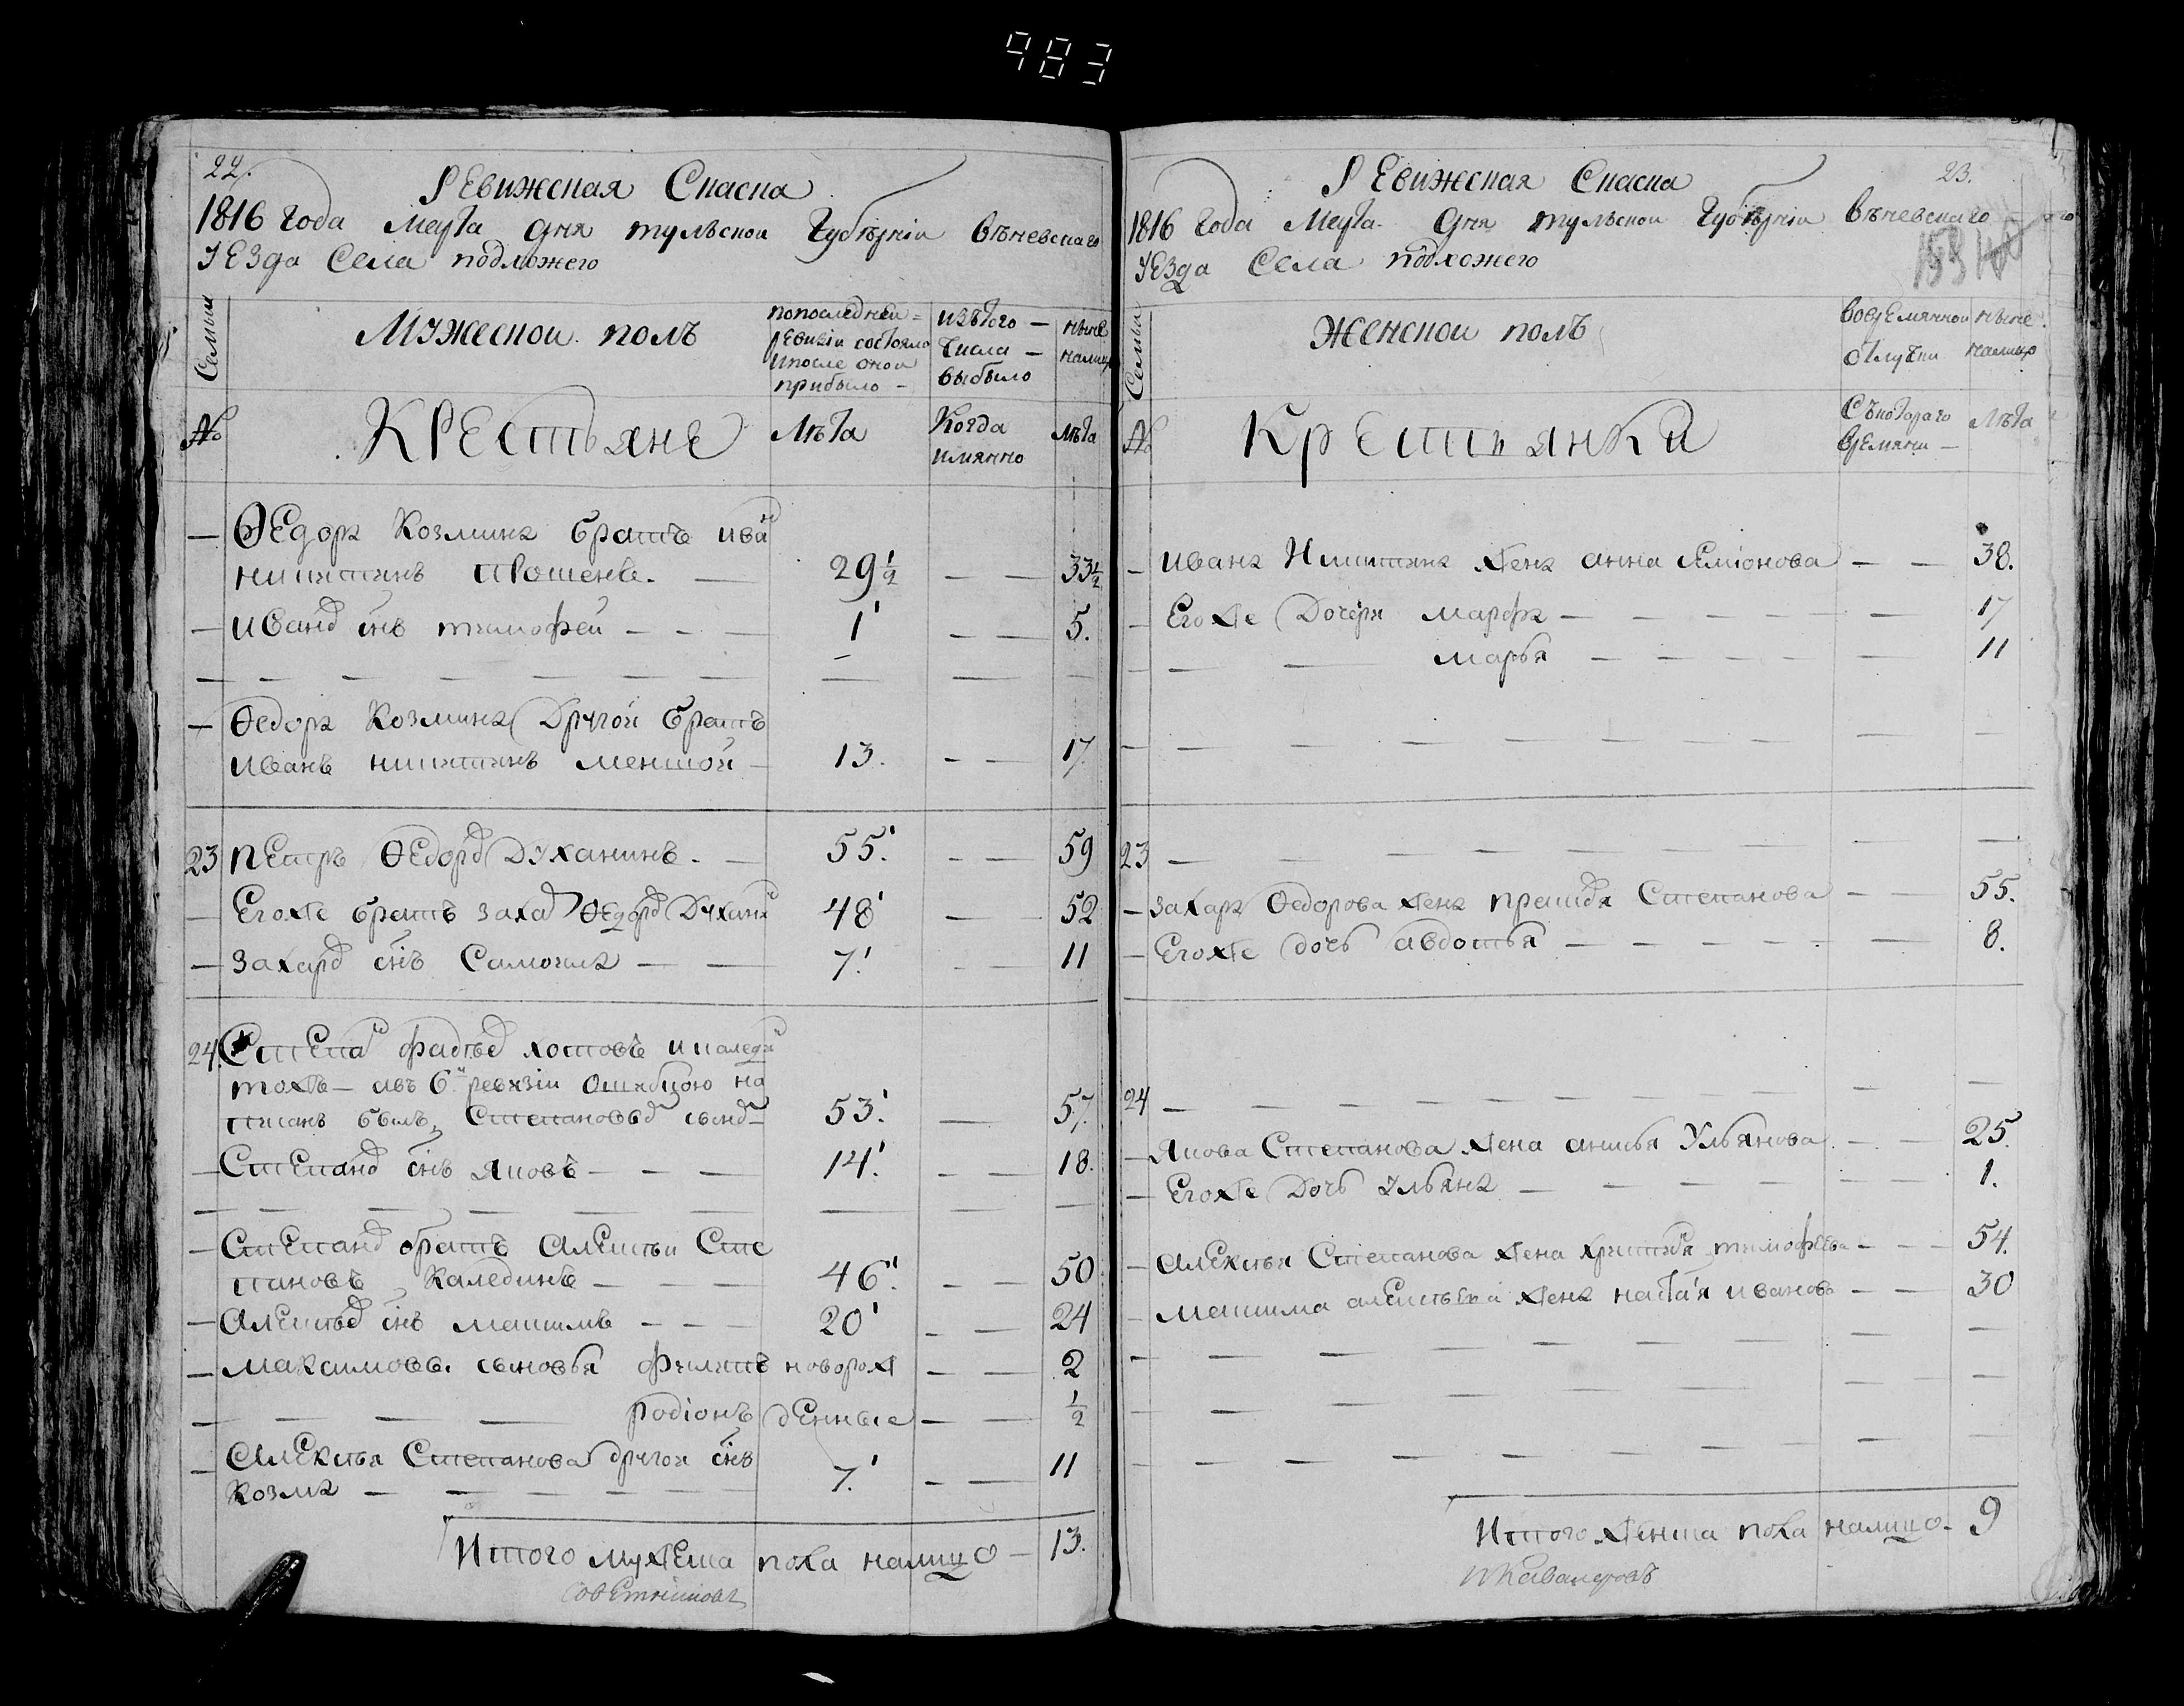 983
22.
Ревижская Сказка
1816 года Меҫта дня тульской Губѣрніи Вѣневскаго
Уезда Села подхожего
Семьи
Мужескои полъ
попоследнеи
ревизіи состояло
ипосле онои
прибыло
изътого
числа
выбыло
ныне
налицо
№
Крестьяне
Лѣта
Когда
имянно
Лѣта
— Ѳедора Козмина братъ ива
никитинъ 29 1/2 — — 33 1/2
— Иванд снъ тимофеи — — — 1 — — 5.
— Ѳедора Козмина Другои братъ
иванъ никитинъ меншои — 13. — — 17
23 Петръ Ѳедорд Духанинъ. — 55. — — 59
— Егоже братъ Заха Ѳедорд Духани 48 — 52
— Захард снъ Самоила — — 7. — — 11
24. Степа фадѣед хотовъ
тожъ — 6 ревизіи ошибкою на
писанъ былъ Степановы 53. — 57.
— Степанд снъ яковъ — — — 14. — — 18.
— Степанд братъ Алексѣи Сте
пановъ Каледикъ — — — 46. — — 50
— Алексѣд снъ максимъ — — — 20 — — 24
— Максимовы сыновья филипъ новорож — — 2
— — — — родіонъ денные — — 1/2
— Алексѣя Степанова другои снъ
Козма — — — — — 7. — — 11
Итого мужеска пола налицо — 13.
23.
Ревижская Сказка
1816 Года Меҫта дня тульской Губѣрніи Вѣневскаго
Уезда Села подхожего
Семьи
Женскои полъ
Вовремяннои
отлучки
ныне
налицо
№
Крестьянки
Съкотораго
времяни —
Лѣта
— Ивана Никитина жена анна Семіонова — — 38.
— Егоже Дочери марфа — — — — 17
— — марья — — — — 11
23 —
— Захара Ѳедорова жена Степанова — — 55.
— Егоже дочь авдотья — — — — 8.
24 —
— Якова Степанова жена Ульянова — — 25.
— Егоже Дочь ульяна — — — — 1.
— Алексѣя Степанова жена тимофѣева — — 54.
— максима алексѣева жена иванова — — 30
Итого женска пола налицо — 9